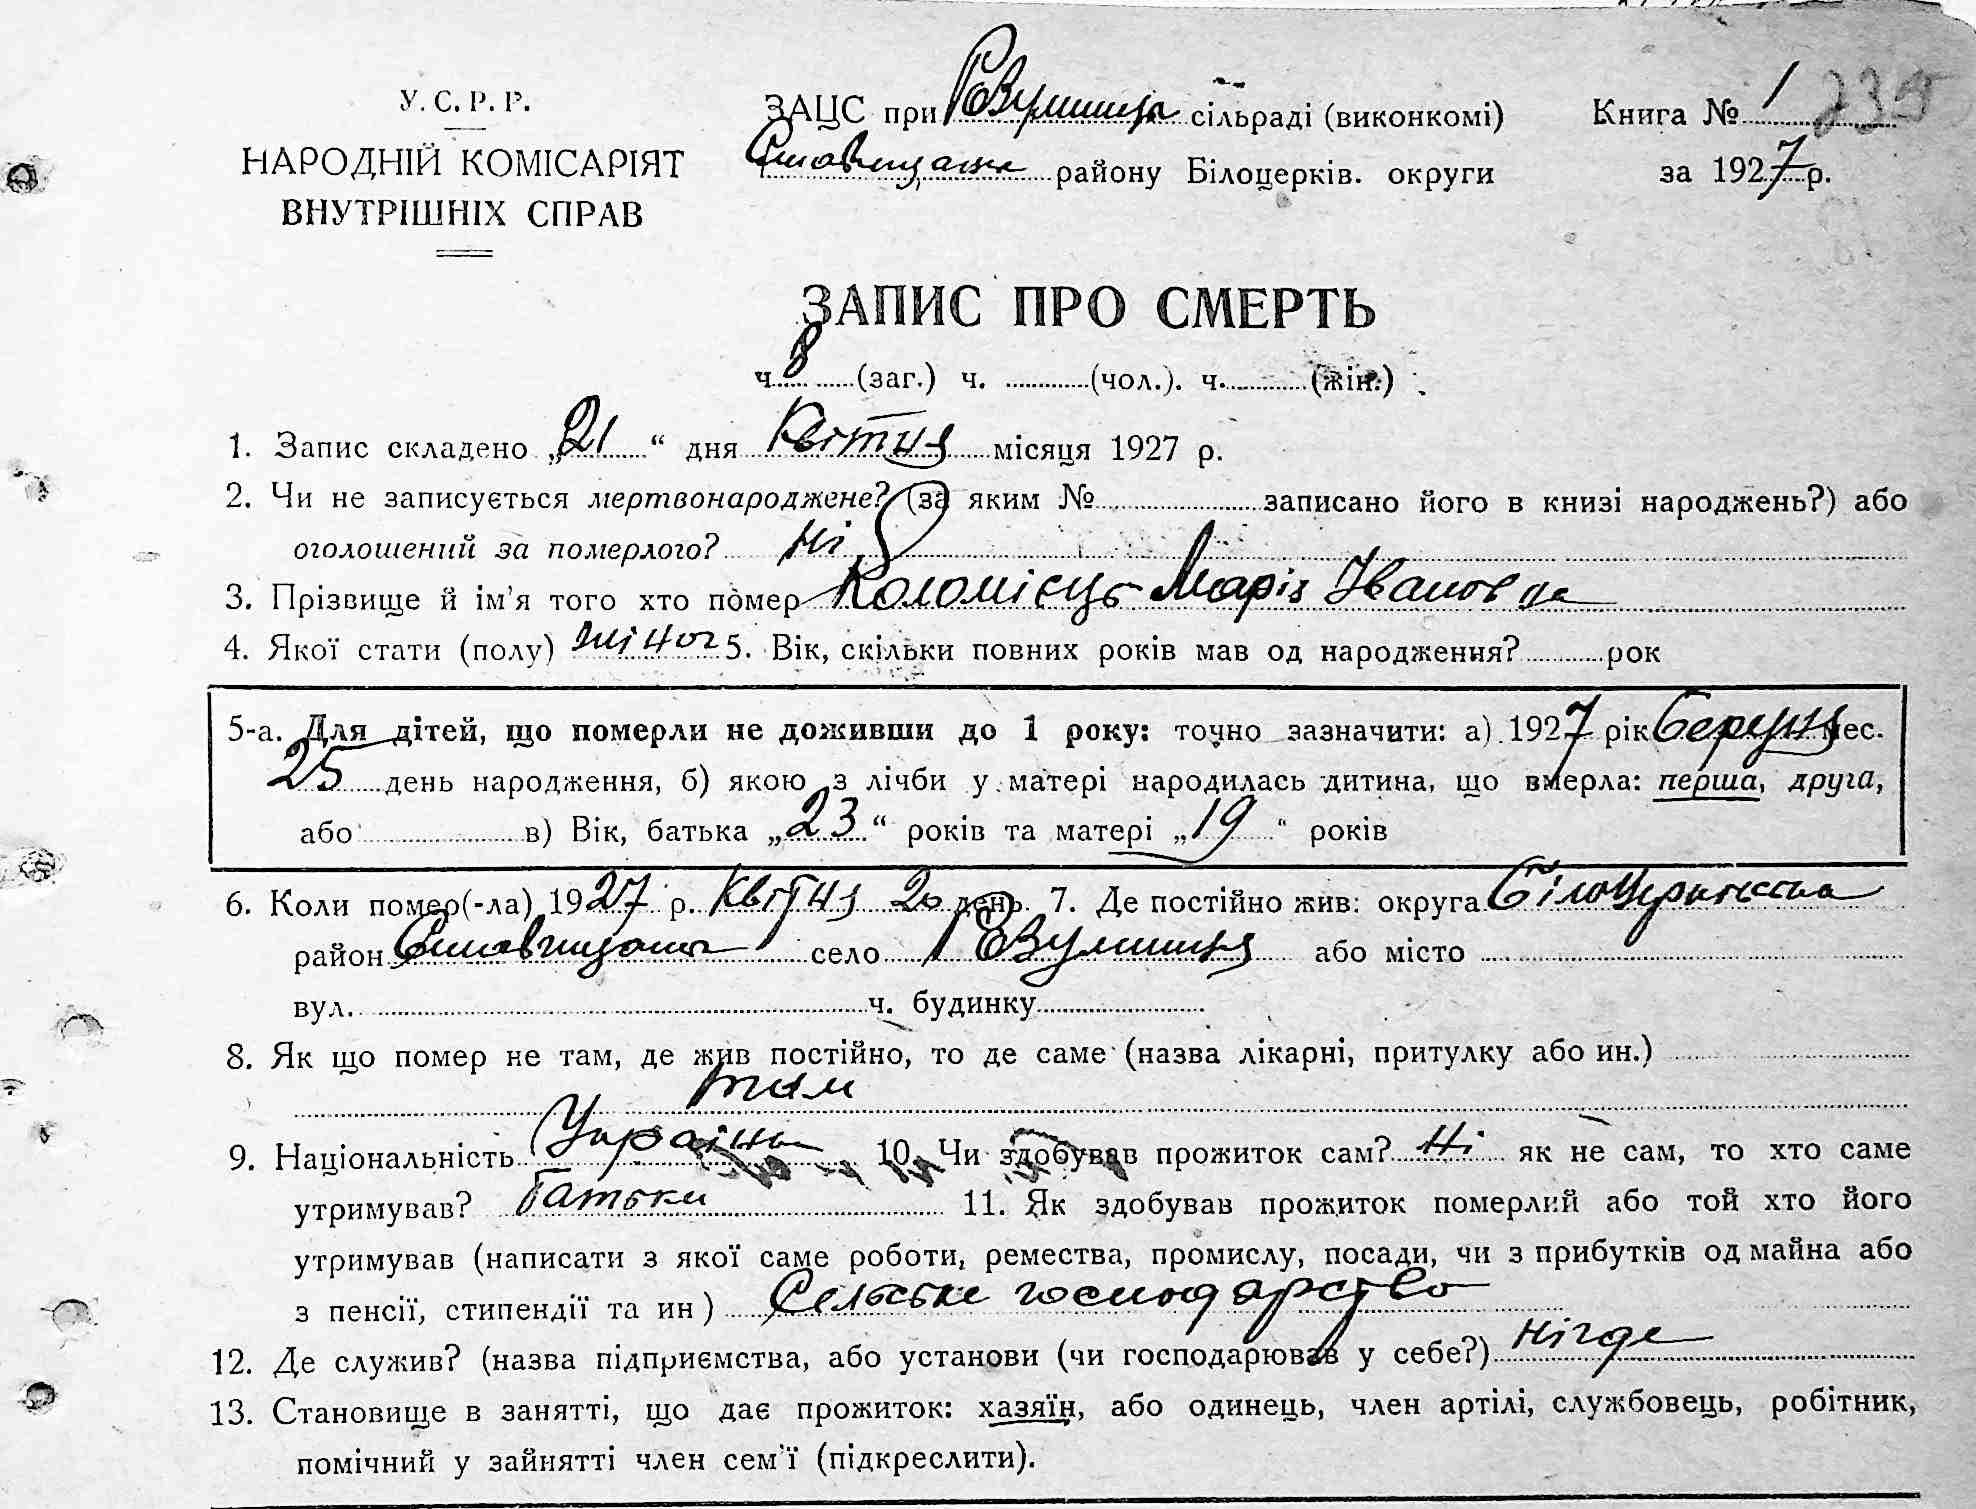 У. С. Р. Р.
НАРОДНІЙ КОМІСАРІЯТ
ВНУТРІШНІХ СПРАВ
ЗАЦС при сільраді (виконкомі)
району Білоцерків. округи
Книга № 1 235
за 1927 р.
ЗАПИС ПРО СМЕРТЬ
ч. 8 (заг.) ч. (чол.). ч. (жін.)
1. Запис складено „21“ дня Квітня місяця 1927 р.
2. Чи не записується мертвонароджене? (за яким № записано його в книзі народжень?) або
оголошений за померлого? Ні
3. Прізвище й ім’я того хто помер Коломієць Марія Івановна
4. Якої стати (полу) жіноч 5. Вік, скільки повних років мав од народження? рок
5-а. Для дітей, що померли не доживши до 1 року: точно зазначити: а) 1927 рік березня мес.
25 день народження, б) якою з лічби у матері народилась дитина, що вмерла: перша, друга,
або в) Вік, батька „23“ років та матері „19“ років
6. Коли помер(-ла) 1927 р. Квітня 20 день. 7. Де постійно жив: округа Білоцерківська
район село або місто
вул. ч. будинку
8. Як що помер не там, де жив постійно, то де саме (назва лікарні, притулку або ин.)
там
9. Національність Українка 10. Чи здобував прожиток сам? Ні як не сам, то хто саме
утримував? Батьки 11. Як здобував прожиток померлий або той хто його
утримував (написати з якої саме роботи, ремества, промислу, посади, чи з прибутків од майна або
з пенсії, стипендії та ин) Сельське господарство
12. Де служив? (назва підприємства, або установи (чи господарював у себе?) нігде
13. Становище в занятті, що дає прожиток: хазяїн, або одинець, член артілі, службовець, робітник,
помічний у зайнятті член сем'ї (підкреслити).